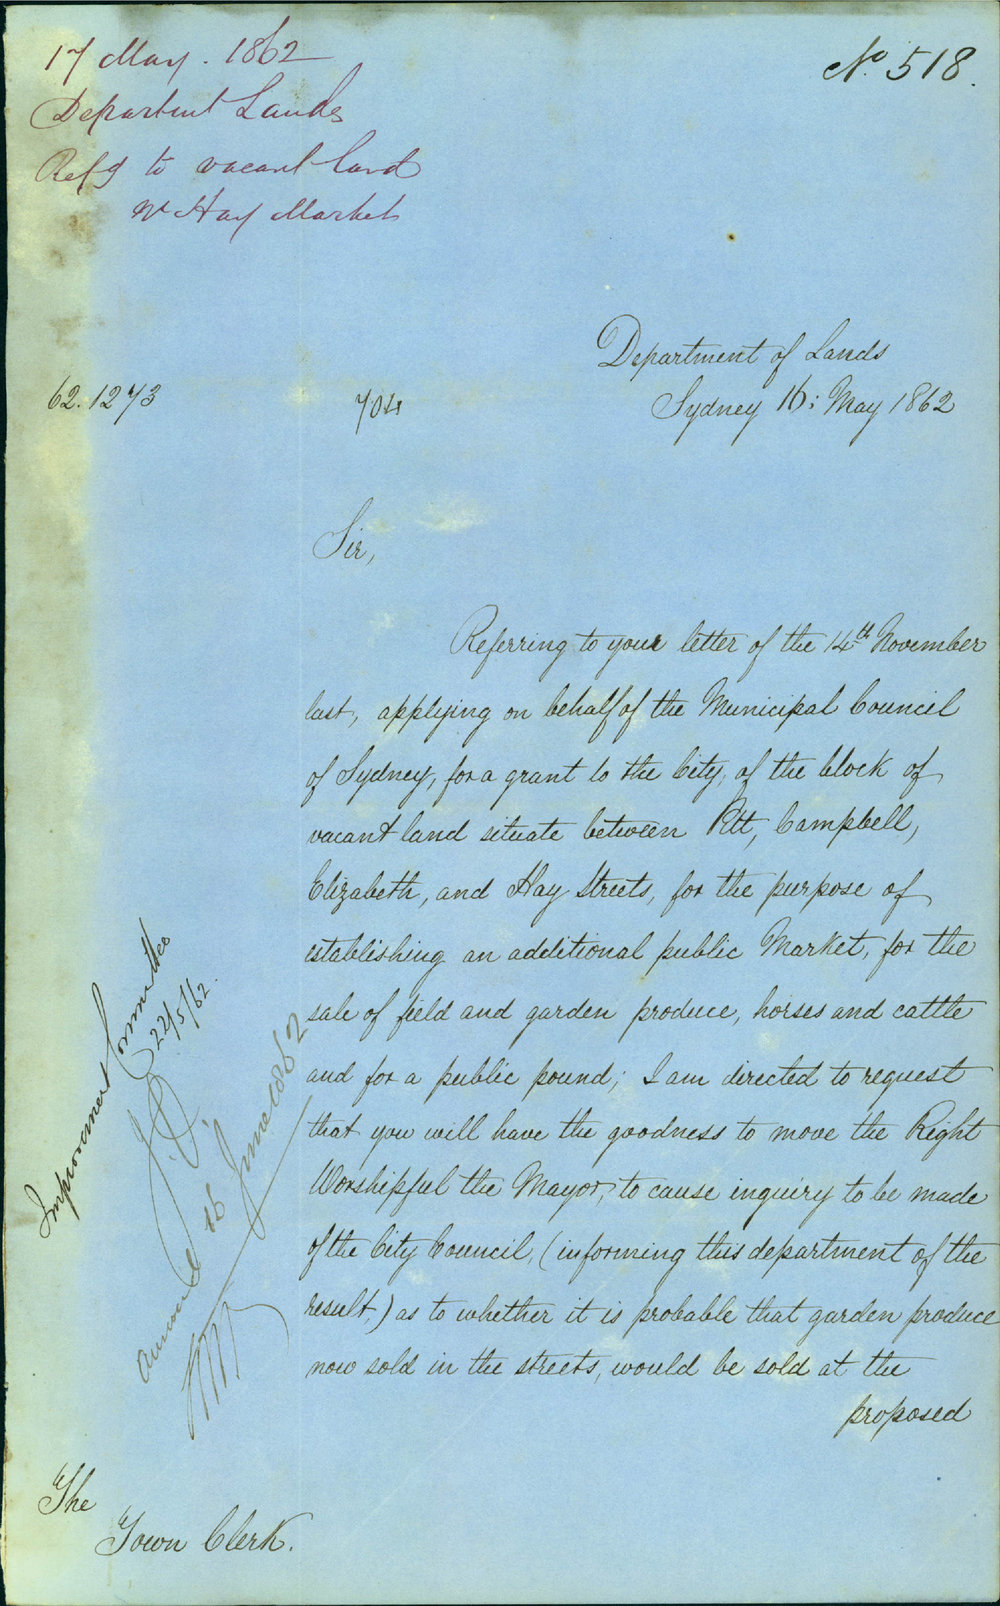 17 May. 1862
No. 518.
Department Lands
Refg to vacant land
Nr Hay Market
Department of Lands
62.1273
704
Sydney 16: May 1862
Sir,
Referring to your letter of the 14th November
last, applying on behalf of the Municipal Council
of Sydney, for a grant to the City, of the block of
vacant land situate between Pitt, Campbell,
Elizabeth, and Hay Streets, for the purpose of
establishing an additional public Market, for the
sale of field and garden produce, horses and cattle
and for a public pound; I am directed to request
that you will have the goodness to move the Right
Worshipful the Mayor, to cause inquiry to be made
of the City Council, (informing this department of the
result,) as to whether it is probable that garden produce
now sold in the streets, would be sold at the
proposed
Improvement Committee
22/5/62.
16 June 1862
The
Town Clerk.